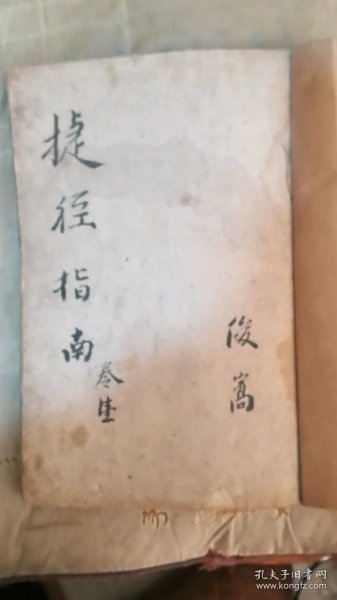 捷徑指南
俊嵩
孔夫子旧书网
www.kongfz.com